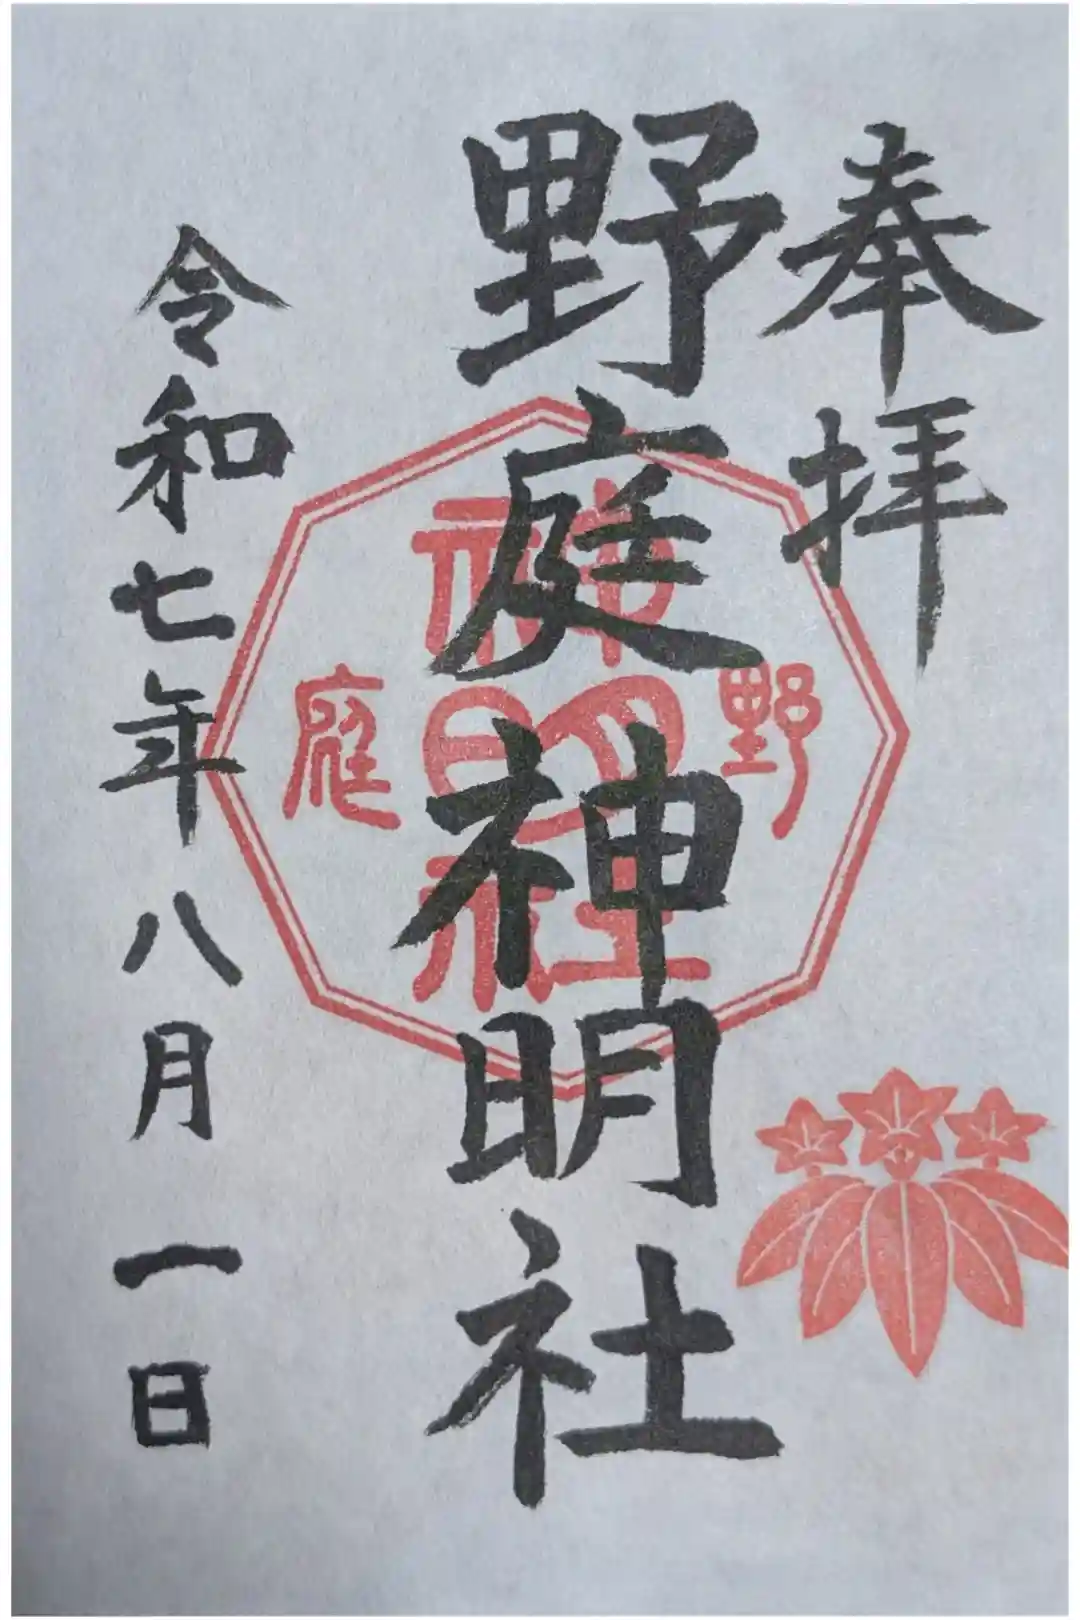 奉拝
野庭神明社
令和七年八月一日
野
神明社
庭